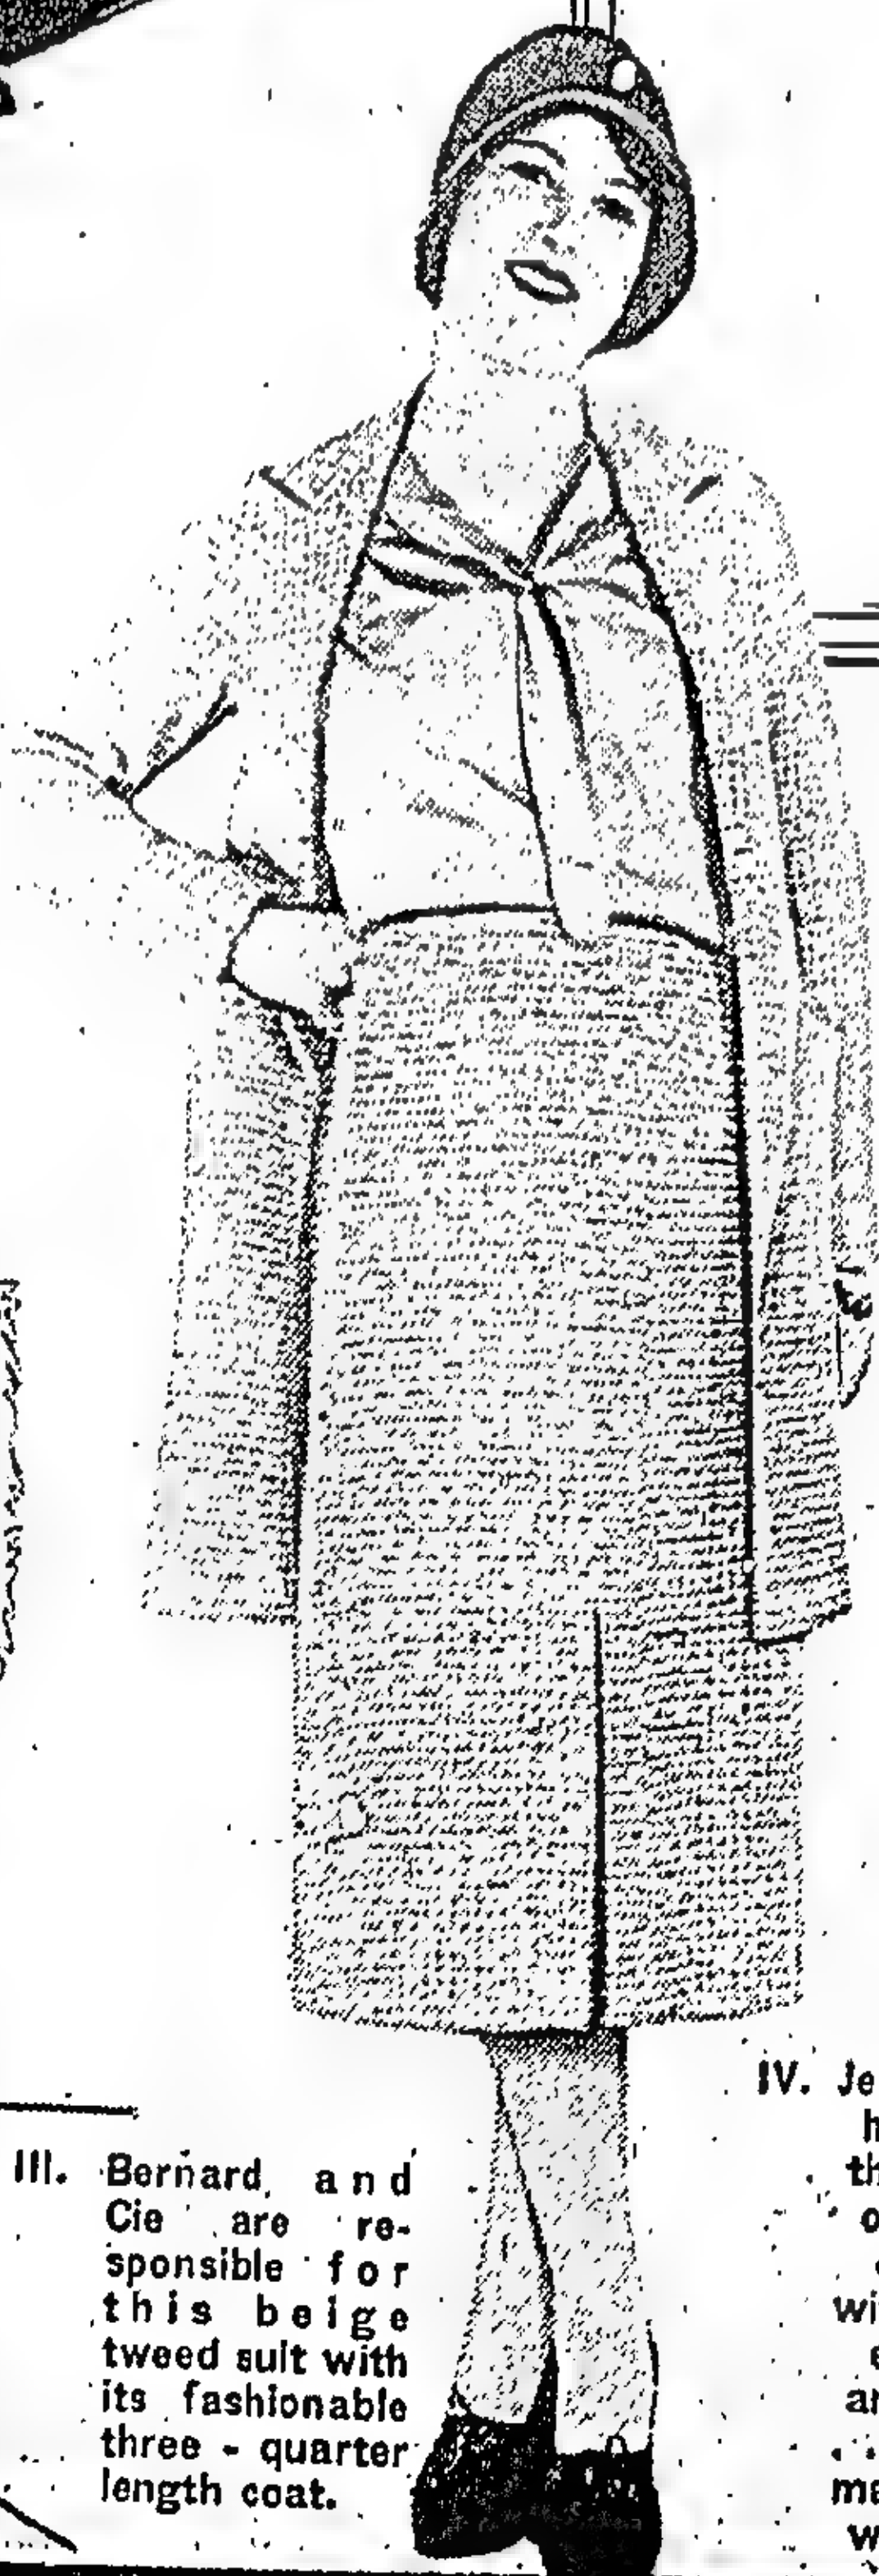 III. Bernard and
Cie are re-
sponsible for
this beige
tweed suit with
its fashionable
three - quarter
length coat.
IV. Je
h
th
o
wi
e
ar
ma
w